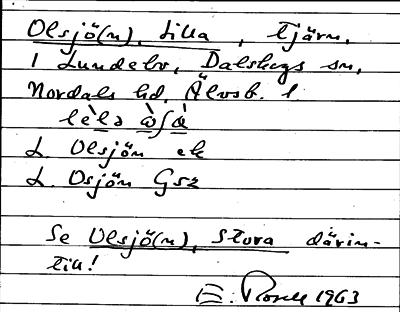 Olsjö(n), Lilla, tjärn,
i Lundebo, Dalskogs sn,
Nordals hd, Älvsb. l.
L. Olsjön ek
L. Osjön Gsz
Se Olsjö(n), Stora därin-
till!
E. 1963